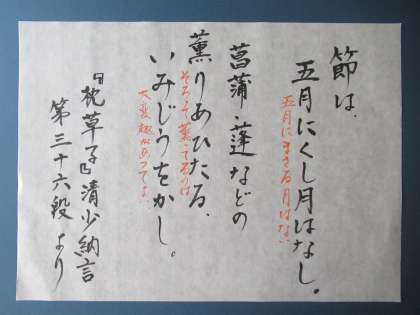 節は、
五月にくし月はなし。
五月にまさる月はない
菖蒲、蓬などの
薫りあひたる、
のは
いみじうをかし。
大変趣があってよい
『枕草子』清少納言
第三十六段より